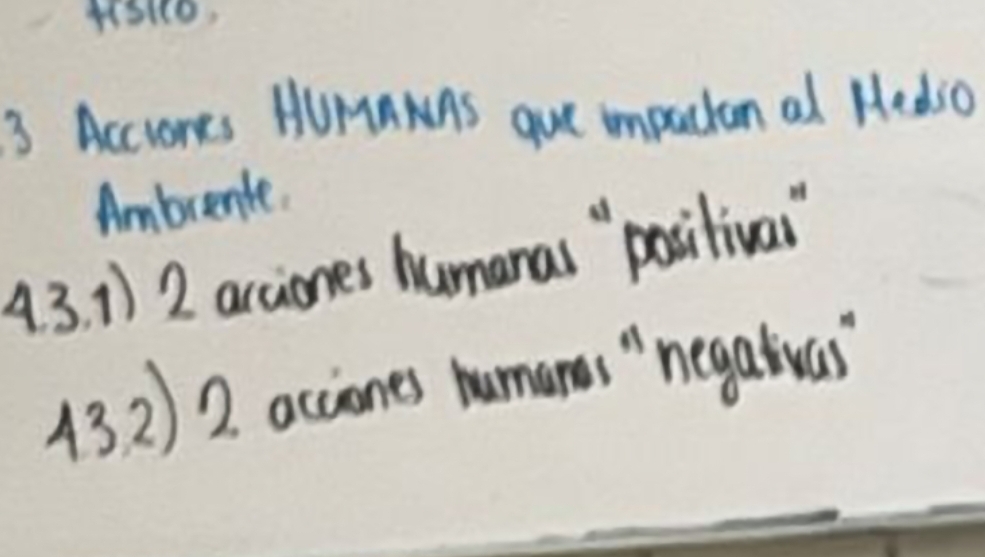 físico.
.3 Acciones HUMANAS que impactan al Medio
Ambiente.
1.3.1) 2 acciones humanas "positivas"
1.3.2) 2 acciones humanas "negativas"